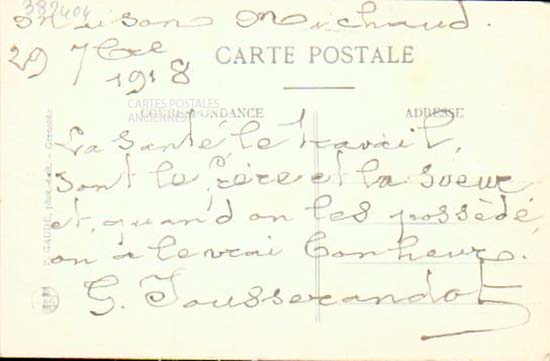 382404
Maison Michaud.
29 7bre
1918
CARTE POSTALE
CARTES POSTALES
ANCIENNES
CORRESPONDANCE
ADRESSE
La santé, le travail,
sont le frère et la sœur
et, quand on les possède,
on a le vrai bonheur.
G. Jousserandot
GAUDE, phot.-édit. - Grenoble